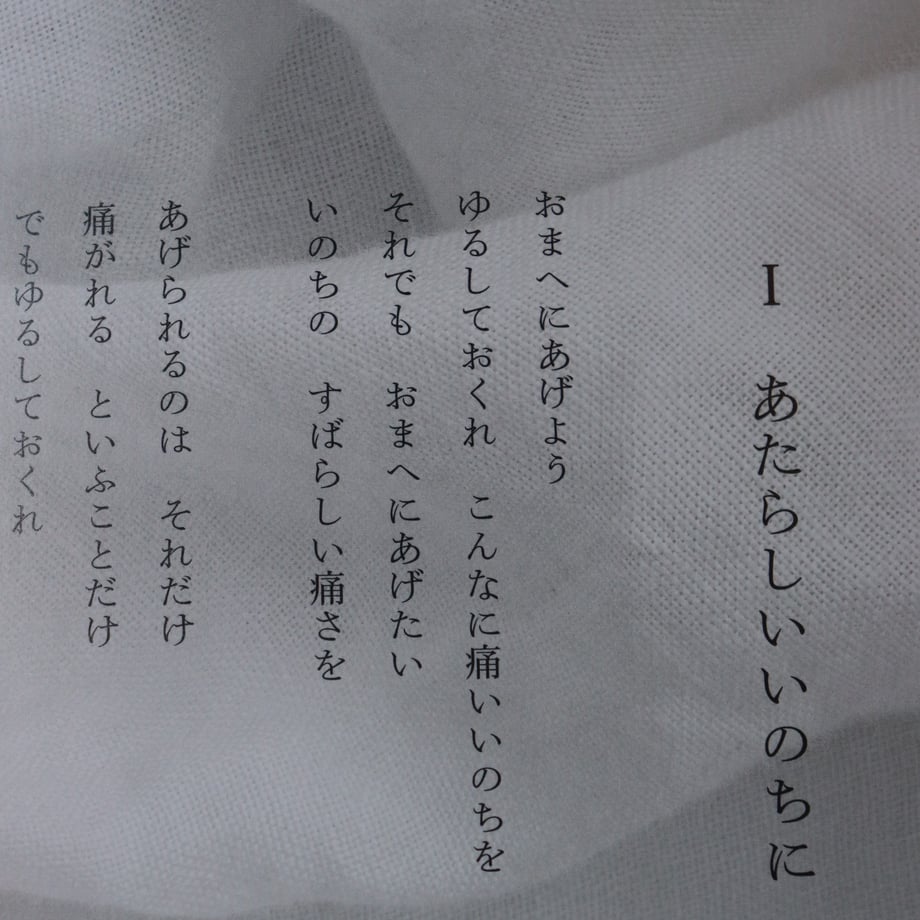 I あたらしいいのちに
おまへにあげよう
ゆるしておくれ こんなに痛いいのちを
それでも おまへにあげたい
いのちの すばらしい痛さを
あげられるのは それだけ
痛がれる といふことだけ
でもゆるしておくれ